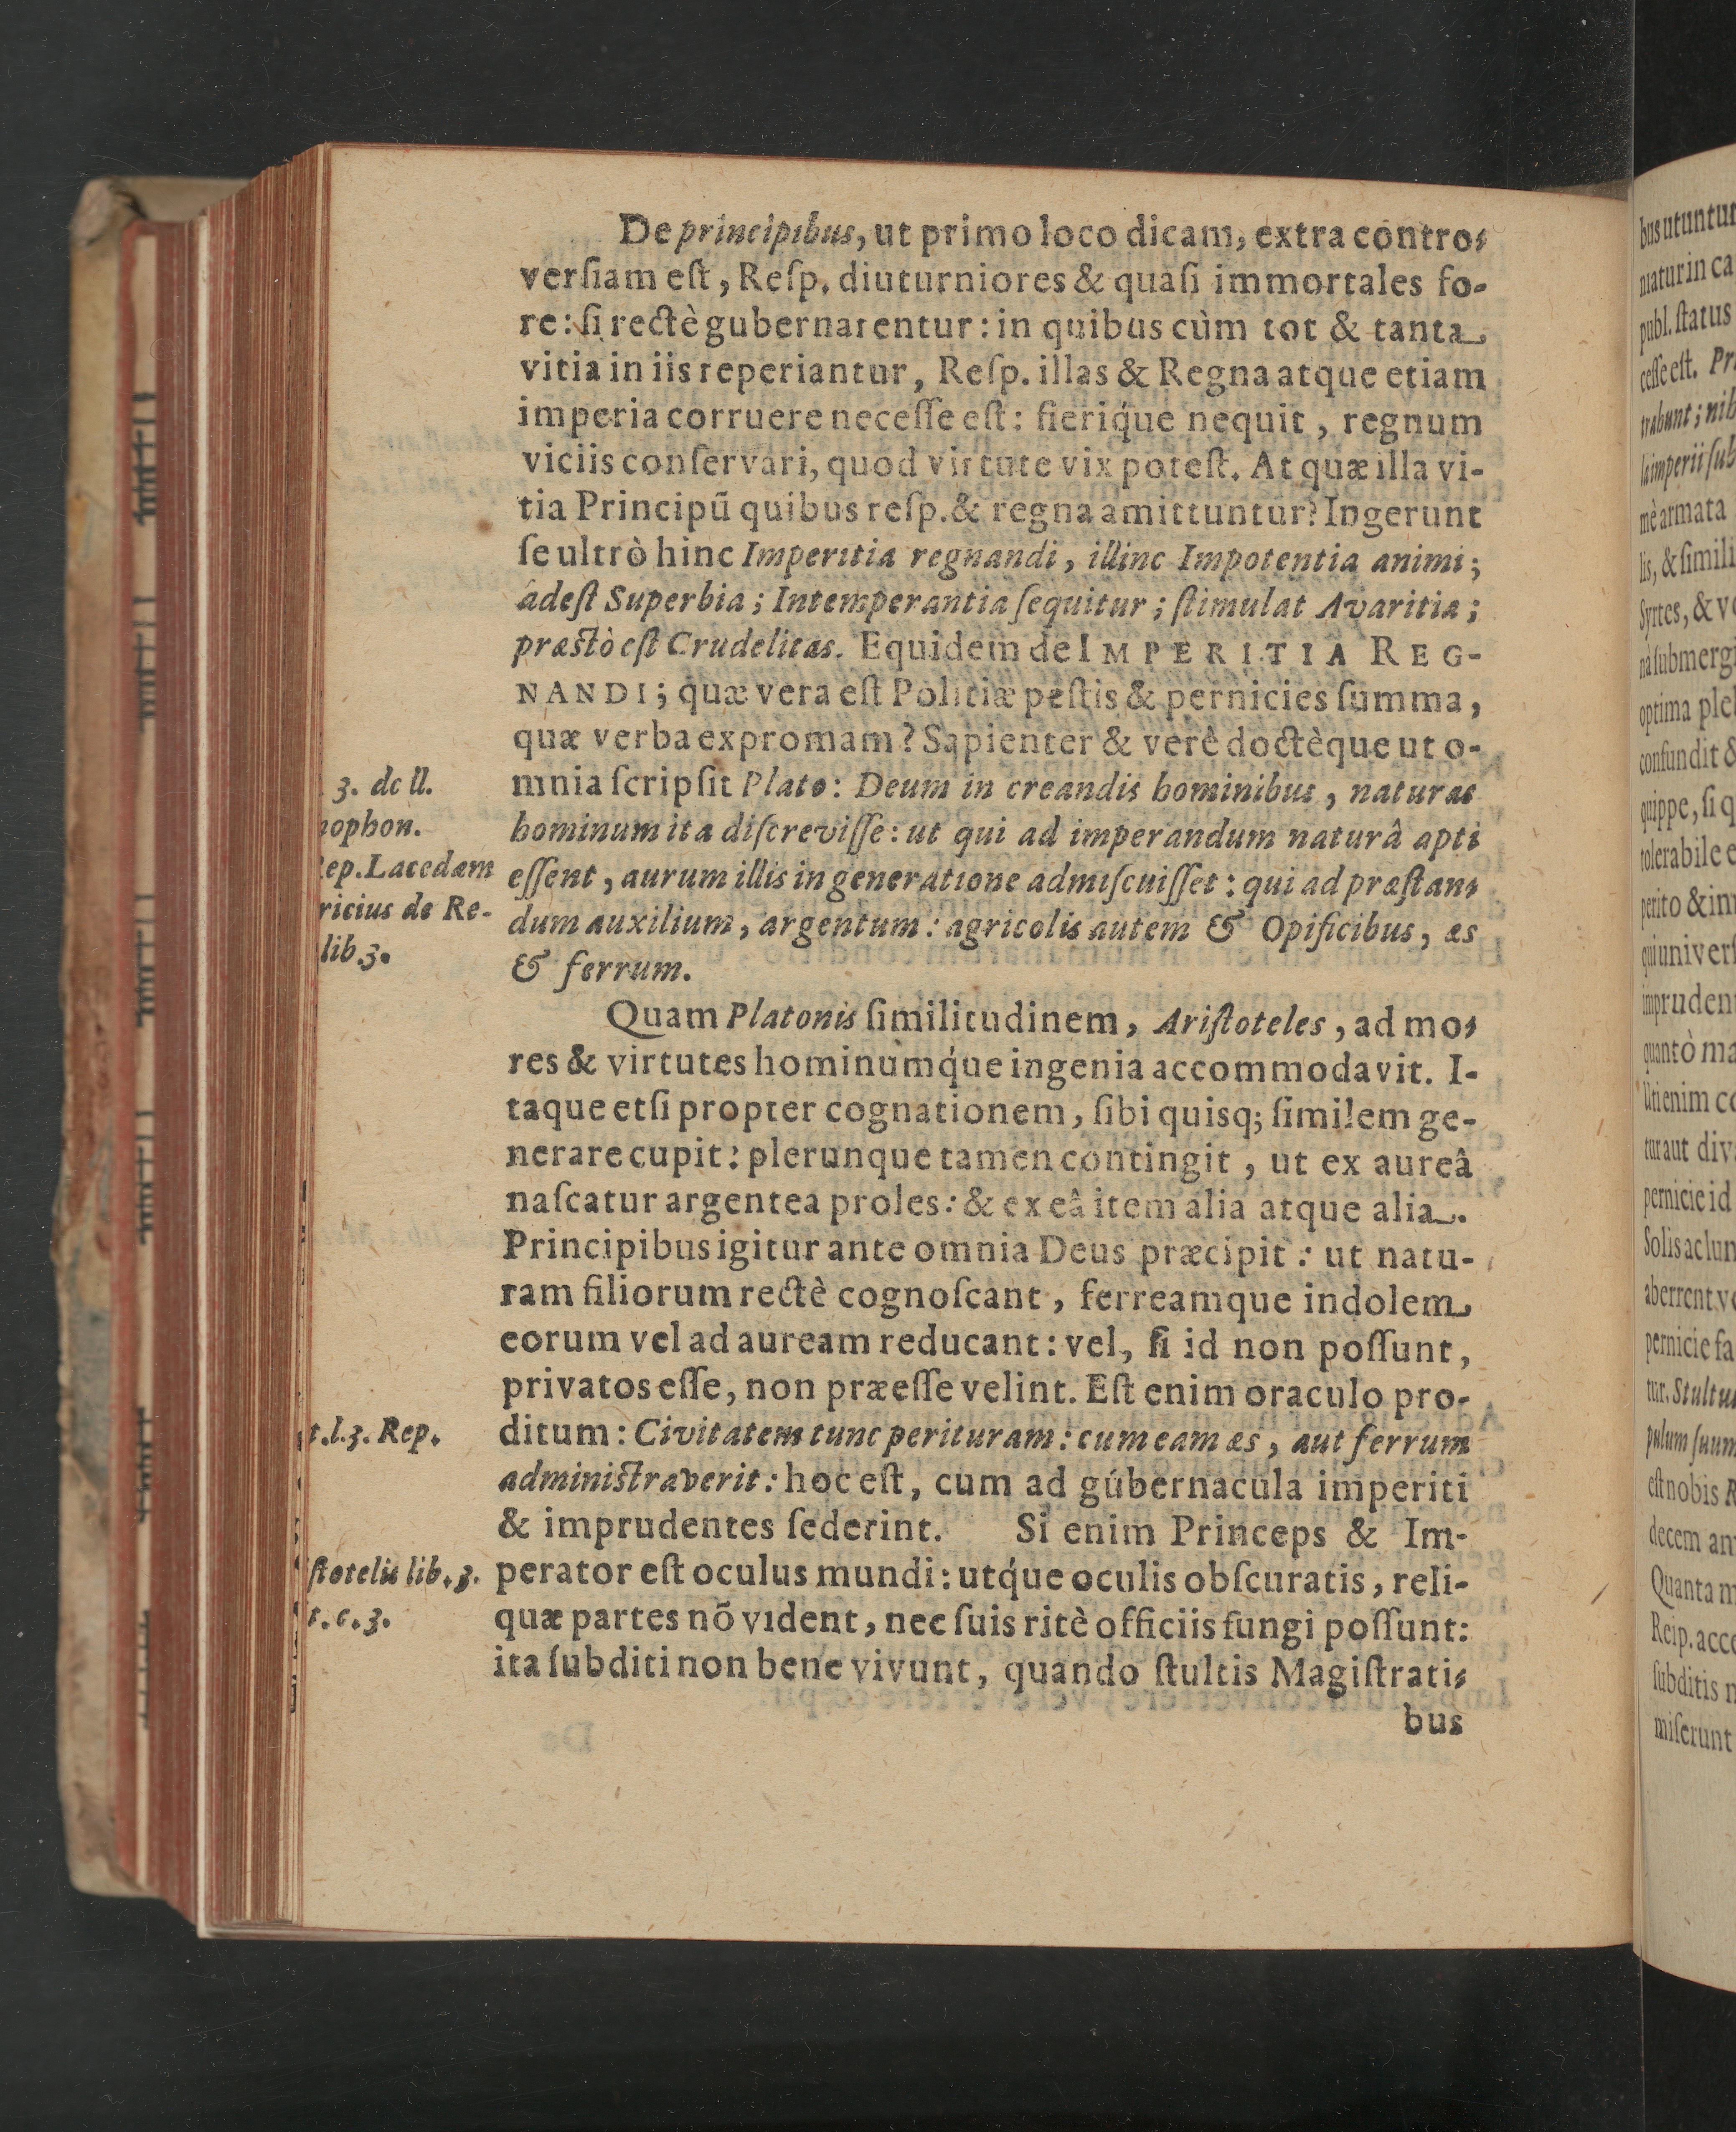 De principibus, ut primo loco dicam, extra contro-
versiam est, Resp. diuturniores & quasi immortales fo-
re: si rectè gubernarentur: in quibus cùm tot & tanta
vitia in iis reperiantur, Resp. illas & Regna atque etiam
imperia corruere necesse est: fieriq́ue nequit, regnum
viciis conservari, quod virtute vix potest. At quæ illa vi-
tia Principũ quibus resp. & regna amittuntur? Ingerunt
se ultrò hinc Imperitia regnandi, illinc Impotentia animi;
adest Superbia; Intemperantia sequitur; stimulat Avaritia;
præstò est Crudelitas. Equidem de IMPERITIA REG-
NANDI; quæ vera est Politiæ pestis & pernicies summa,
quæ verba expromam? Sapienter & verè doctèque ut o-
mnia scripsit Plato: Deum in creandis hominibus, naturas
hominum ita discrevisse: ut qui ad imperandum naturâ apti
essent, aurum illis in generatione admiscuisset: qui ad præstan-
dum auxilium, argentum: agricolis autem & Opificibus, æs
& ferrum.
3. de ll.
nophon.
Rep. Lacedæm
ricius de Re-
lib. 3.
Quam Platonis similitudinem, Aristoteles, ad mo-
res & virtutes hominumq́ue ingenia accommodavit. I-
taque etsi propter cognationem, sibi quisq; similem ge-
nerare cupit: plerunque tamen contingit, ut ex aureâ
nascatur argentea proles: & ex eâ item alia atque alia.
Principibus igitur ante omnia Deus præcipit: ut natu-
ram filiorum rectè cognoscant, ferreamque indolem
eorum vel ad auream reducant: vel, si id non possunt,
privatos esse, non præesse velint. Est enim oraculo pro-
ditum: Civitatem tunc perituram: cum eam æs, aut ferrum
administraverit: hoc est, cum ad gúbernacula imperiti
& imprudentes sederint. Si enim Princeps & Im-
perator est oculus mundi: utq́ue oculis obscuratis, reli-
quæ partes nõ vident, nec suis ritè officiis fungi possunt:
ita subditi non bene vivunt, quando stultis Magistrati-
bus
t. l. 3. Rep.
stotelis lib. 3.
t. c. 3.
bus utuntur
matur in ca
publ. status
cesse est. Pr
trabunt; nib
la imperii sub
mè armata
lis, & simili
Syrtes, & vo
nà submerg
optima ple
confundit &
quippe, si q
tolerabile e
perito & im
qui univers
impruden
quantò ma
Uti enim co
tur aut div
pernicie id
Solis ac lun
aberrent, v
pernicie fa
tur. Stultu
pulum suum
est nobis R
decem an
Quanta m
Reip. acce
subditis n
miserunt